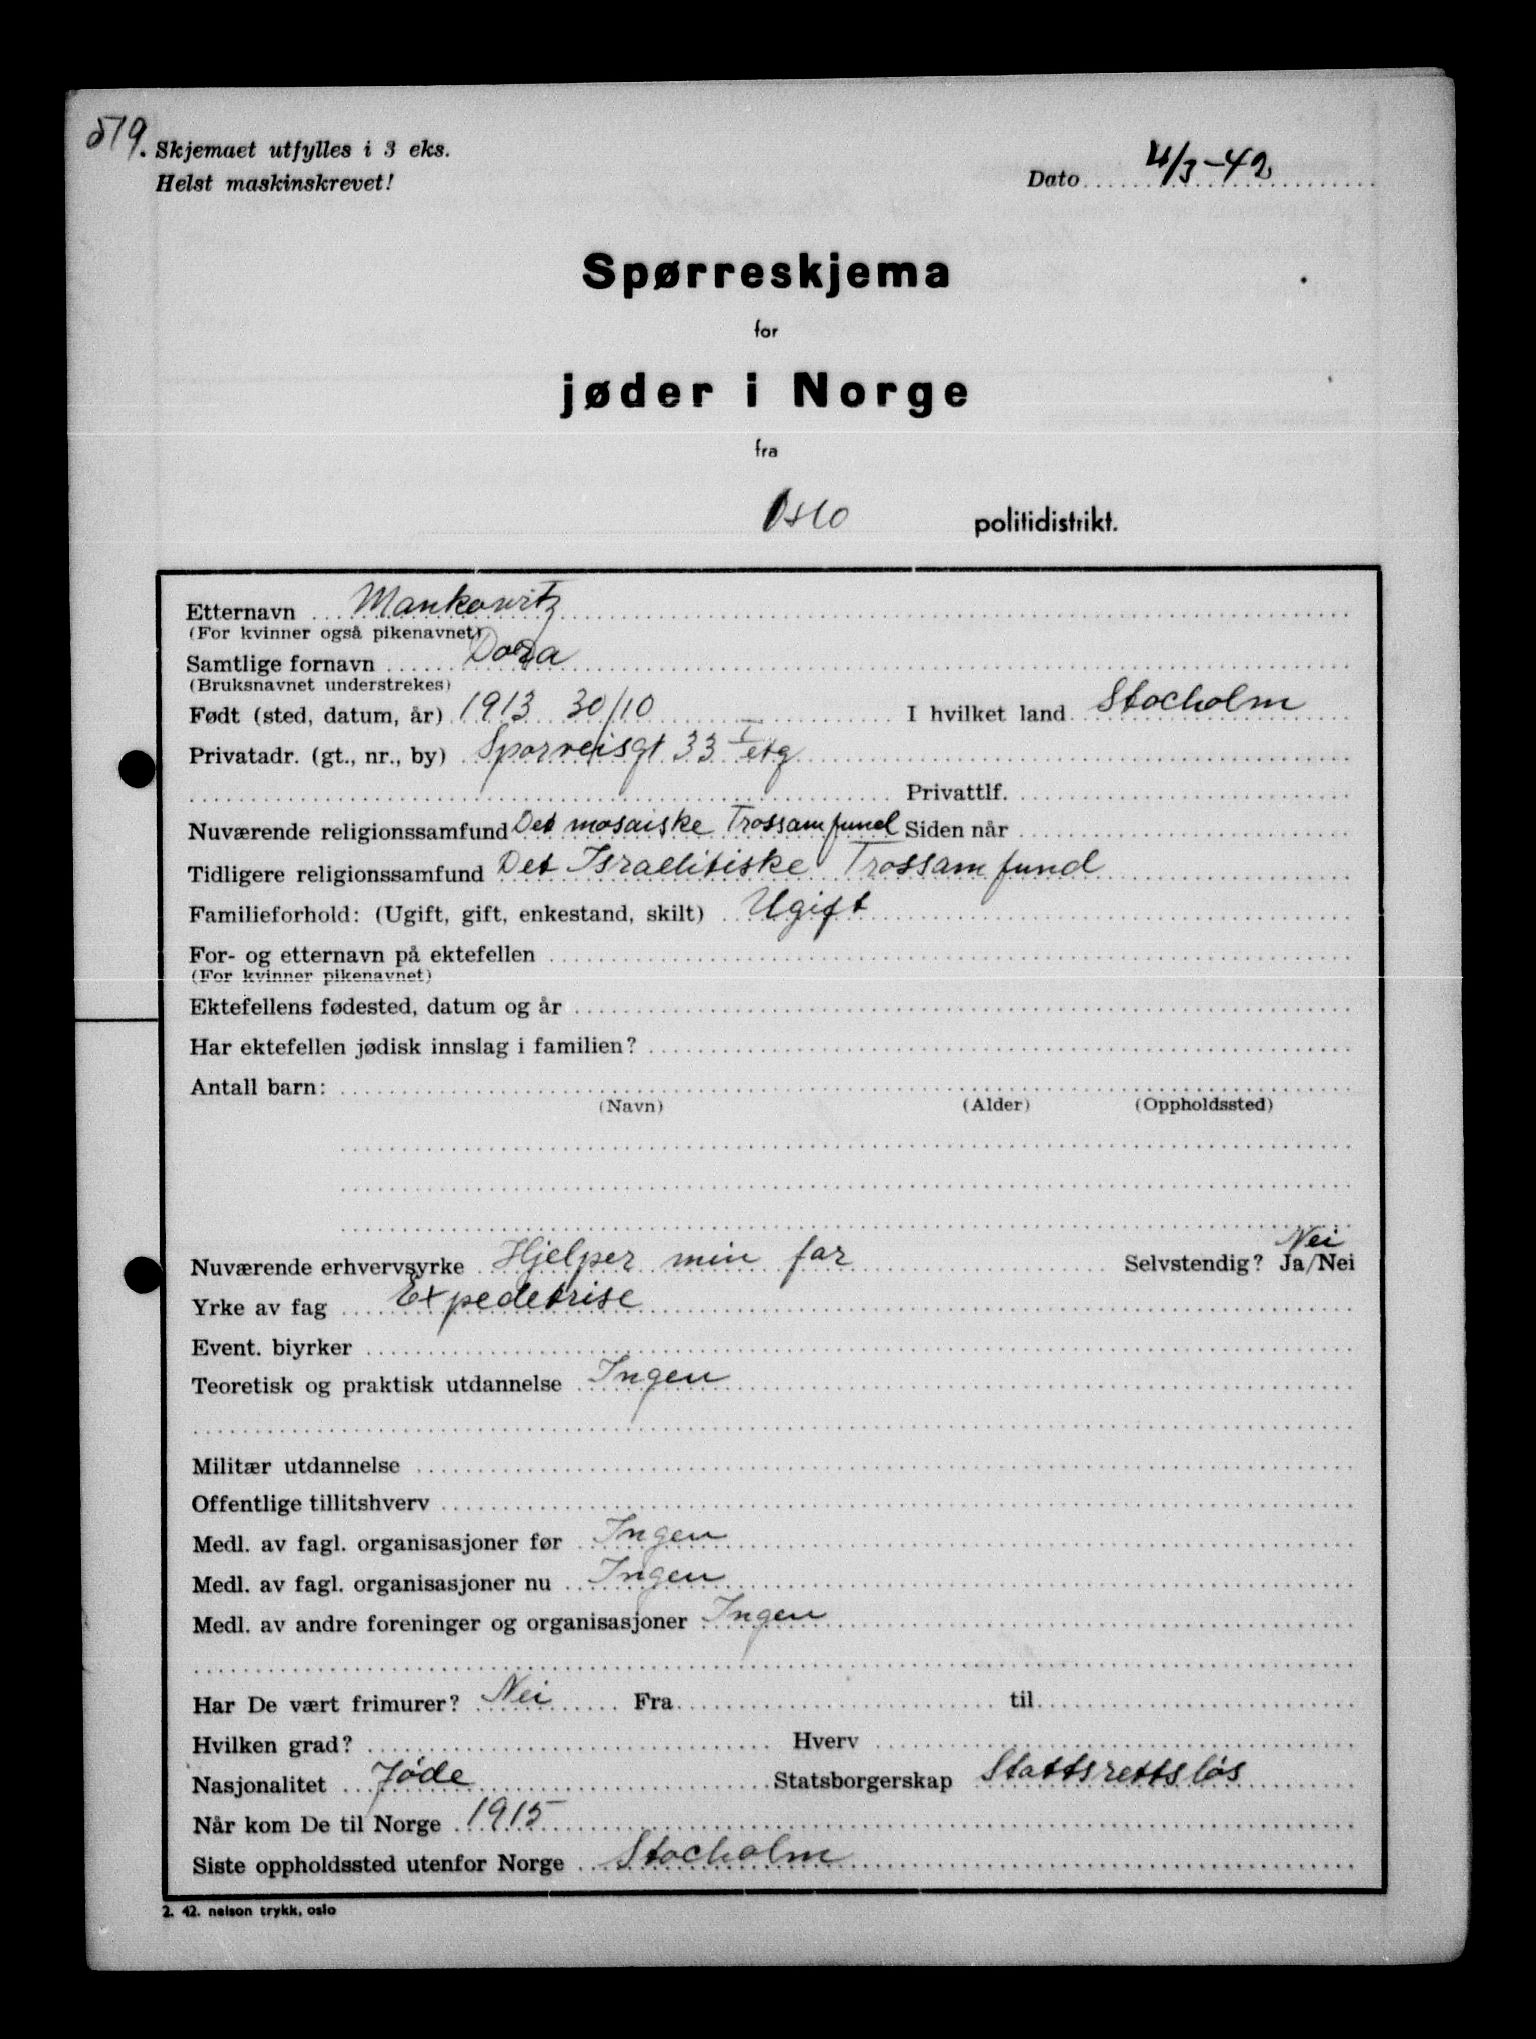 519.
Skjemaet utfylles i 3 eks.
Helst maskinskrevet!
Dato 4/3-42
Spørreskjema
for
jøder i Norge
fra
Oslo politidistrikt.
Etternavn Mankowitz
(For kvinner også pikenavnet)
Samtlige fornavn Dora
(Bruksnavnet understrekes)
Født (sted, datum, år) 1913 30/10 I hvilket land Stocholm
Privatadr. (gt., nr., by) Sporveisgt 33 I etg
Privattlf.
Nuværende religionssamfund Det mosaiske Trossamfund Siden når
Tidligere religionssamfund Det Israelitiske Trossamfund
Familieforhold: (Ugift, gift, enkestand, skilt) Ugift
For- og etternavn på ektefellen
(For kvinner pikenavnet)
Ektefellens fødested, datum og år
Har ektefellen jødisk innslag i familien?
Antall barn:
(Navn) (Alder) (Oppholdssted)
Nei
Nuværende erhvervsyrke Hjelper min far Selvstendig? Ja/Nei
Yrke av fag Expedetrise
Event. biyrker
Teoretisk og praktisk utdannelse Ingen
Militær utdannelse
Offentlige tillitshverv
Medl. av fagl. organisasjoner før Ingen
Medl. av fagl. organisasjoner nu Ingen
Medl. av andre foreninger og organisasjoner Ingen
Har De vært frimurer? Nei Fra til
Hvilken grad? Hverv
Nasjonalitet Jøde Statsborgerskap Stattsrettsløs
Når kom De til Norge 1915
Siste oppholdssted utenfor Norge Stocholm
2. 42. nelson trykk, oslo